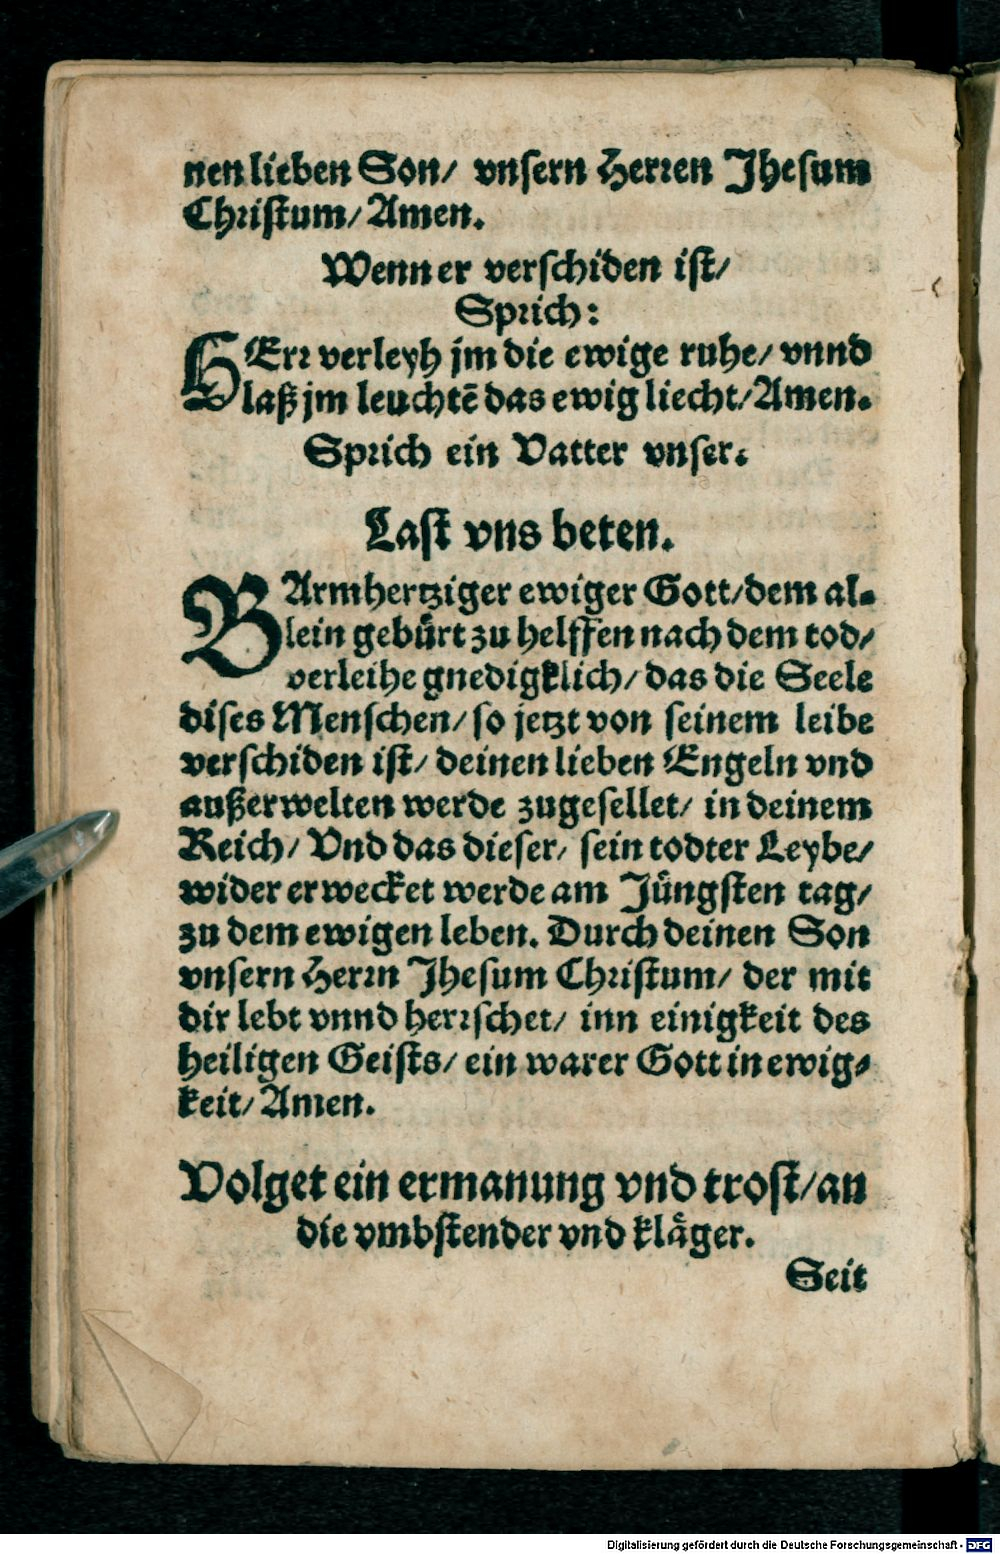 nen lieben Son/ vnsern Herren Jhesum
Christum/ Amen.
Wenn er verschiden ist/
Sprich:
HErr verleyh jm die ewige ruhe/ vnnd
laß jm leuchtē das ewig liecht/ Amen.
Sprich ein Vatter vnser.
Last vns beten.
BArmhertziger ewiger Gott/ dem al-
lein gebuͤrt zu helffen nach dem tod/
verleihe gnedigklich/ das die Seele
dises Menschen/ so jetzt von seinem leibe
verschiden ist/ deinen lieben Engeln vnd
außerwelten werde zugesellet/ in deinem
Reich/ Vnd das dieser/ sein todter Leybe/
wider erwecket werde am Juͤngsten tag/
zu dem ewigen leben. Durch deinen Son
vnsern Herrn Jhesum Christum/ der mit
dir lebt vnnd herrschet/ inn einigkeit des
heiligen Geists/ ein warer Gott in ewig-
keit/ Amen.
Volget ein ermanung vnd trost/ an
die vmbstender vnd klaͤger.
Seit
Digitalisierung gefördert durch die Deutsche Forschungsgemeinschaft - DFG